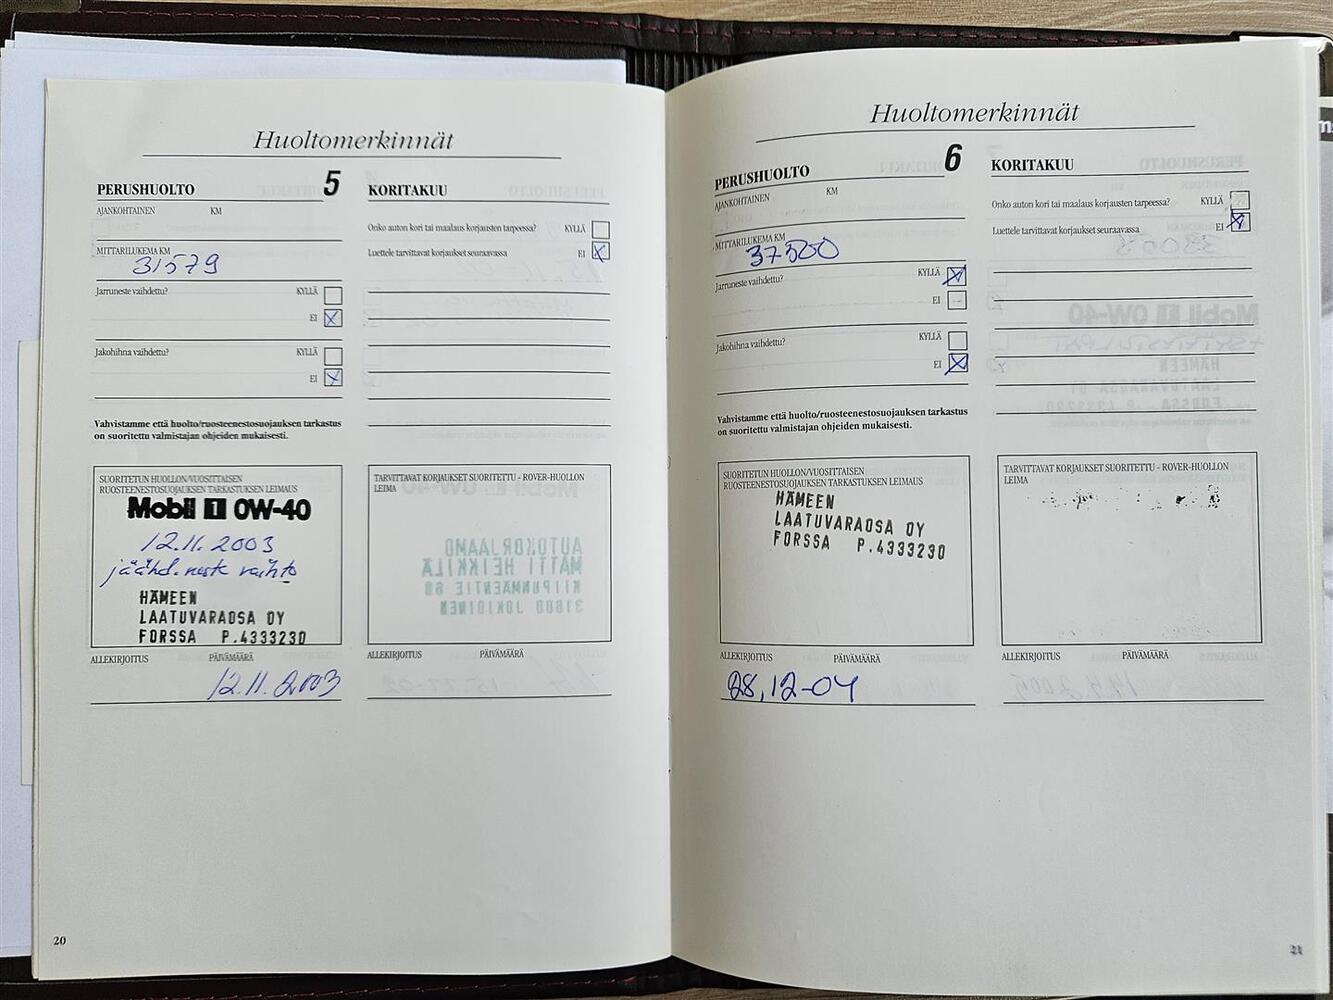 Huoltomerkinnät
PERUSHUOLTO 5
AJANKOHTAINEN KM
MITTARILUKEMA KM
31579
Jarruneste vaihdettu? KYLLÄ
EI
Jakohihna vaihdettu? KYLLÄ
EI
Vahvistamme että huolto/ruosteenestosuojauksen tarkastus
on suoritettu valmistajan ohjeiden mukaisesti.
SUORITETUN HUOLLON/VUOSITTAISEN
RUOSTEENESTOSUOJAUKSEN TARKASTUKSEN LEIMAUS
Mobil 1 0W-40
12.11.2003
jäähd.neste vaihto
HÄMEEN
LAATUVARAOSA OY
FORSSA P.4333230
ALLEKIRJOITUS PÄIVÄMÄÄRÄ
12.11.2003
KORITAKUU
Onko auton kori tai maalaus korjausten tarpeessa? KYLLÄ
Luettele tarvittavat korjaukset seuraavassa EI
TARVITTAVAT KORJAUKSET SUORITETTU - ROVER-HUOLLON
LEIMA
AUTOKORJAAMO
MATTI HEIKKILÄ
KIIPUNMÄENTIE 60
31600 JOKIOINEN
ALLEKIRJOITUS PÄIVÄMÄÄRÄ
20
Huoltomerkinnät
PERUSHUOLTO 6
AJANKOHTAINEN KM
MITTARILUKEMA KM
37500
Jarruneste vaihdettu? KYLLÄ
EI
Jakohihna vaihdettu? KYLLÄ
EI
Vahvistamme että huolto/ruosteenestosuojauksen tarkastus
on suoritettu valmistajan ohjeiden mukaisesti.
SUORITETUN HUOLLON/VUOSITTAISEN
RUOSTEENESTOSUOJAUKSEN TARKASTUKSEN LEIMAUS
HÄMEEN
LAATUVARAOSA OY
FORSSA P.4333230
ALLEKIRJOITUS PÄIVÄMÄÄRÄ
28,12-04
KORITAKUU
Onko auton kori tai maalaus korjausten tarpeessa? KYLLÄ
Luettele tarvittavat korjaukset seuraavassa EI
TARVITTAVAT KORJAUKSET SUORITETTU - ROVER-HUOLLON
LEIMA
ALLEKIRJOITUS PÄIVÄMÄÄRÄ
21